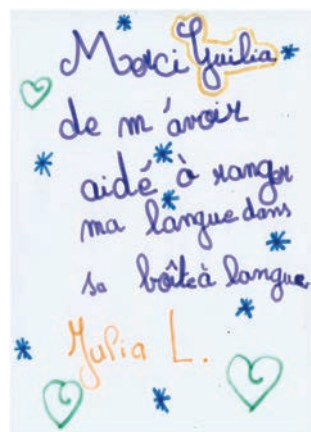 Merci Guilia
de m'avoir
aidé à ranger
ma langue dans
sa boîte à langue
Julia L.